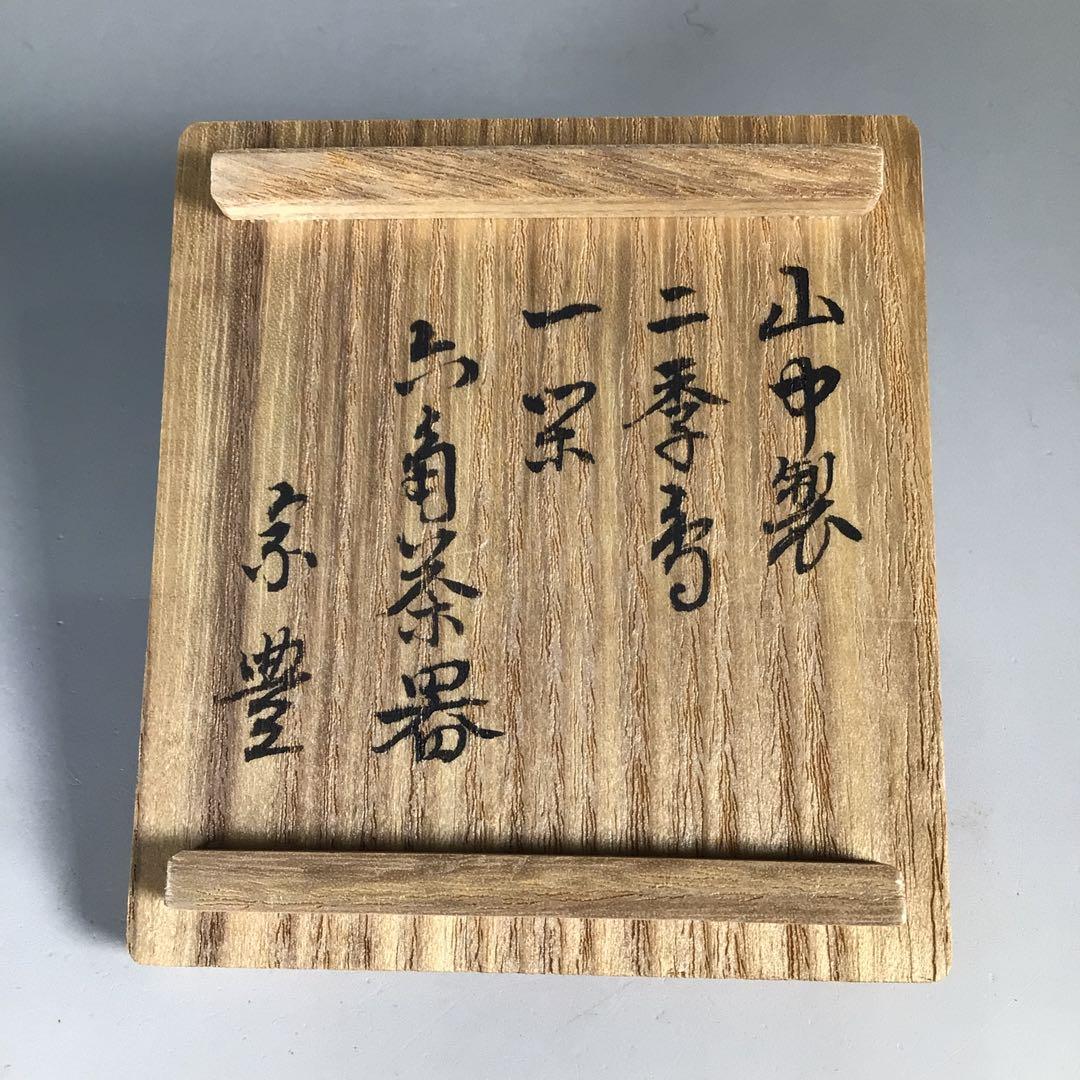 山中製
二季鳥
一栄
六角茶器
宗豊